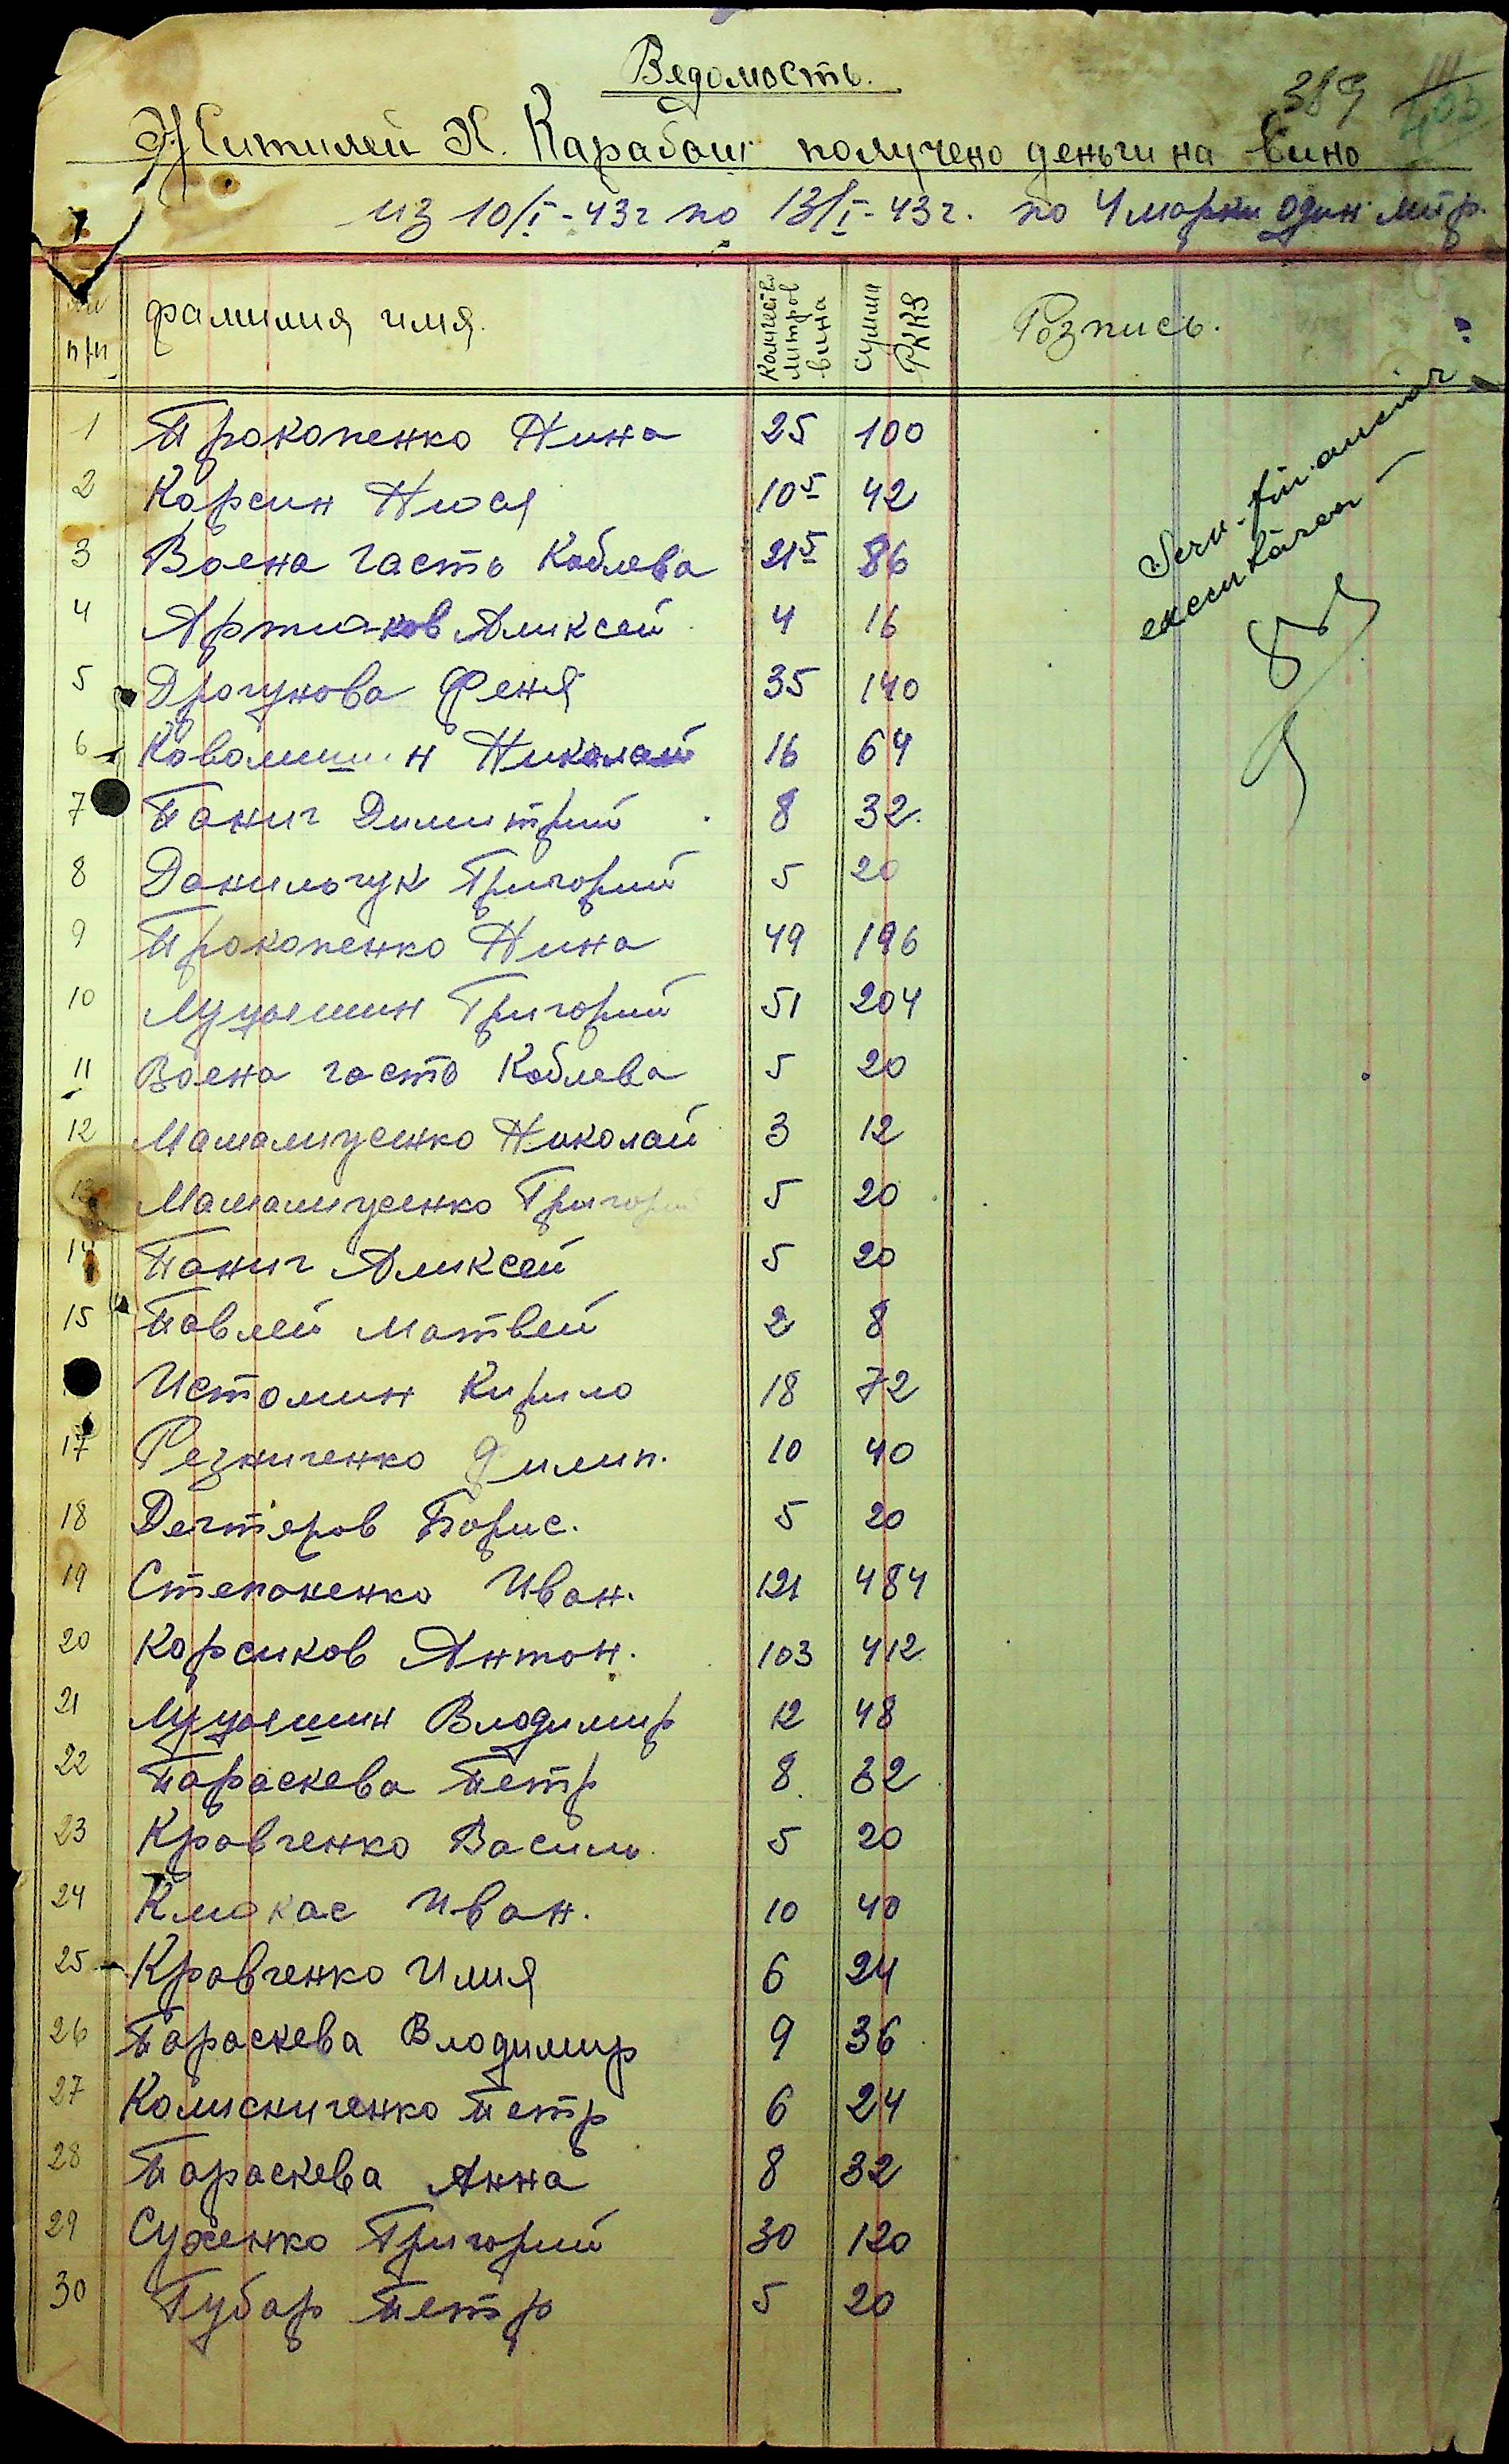 Ведомость.
389
Жителей Х. Карабаш получено деньги на вино
из 10/I-43г по 13/I-43г. по 4 марки один литр.
п/п
фамилия имя.
Количество литров вина
Сумма РККS
Розпись.
Serv. financiar
executarea
1 Прокопенко Нина 25 100
2 Корсин Нюся 10⁵ 42
3 Воена часть Коблева 21⁵ 86
4 Артюков Аликсей 4 16
5 Драгунова Феня 35 140
6 Николай 16 64
7 Панич Димитрий 8 32.
8 Данильчук Григорий 5 20
9 Прокопенко Нина 49 196
10 Григорий 51 204
11 Воена часть Коблева 5 20
12 Мамалиусенко Николай 3 12
13 Мамалиусенко Григорий 5 20
14 Панич Аликсей 5 20
15 Павлей Матвей 2 8
Истомин Кирило 18 72
17 Резниченко Филип. 10 40
18 Дегтяров Борис. 5 20
19 Степоненко Иван. 121 484
20 Корсиков Антон. 103 412
21 Владимир 12 48
22 Параскева Петр 8 32
23 Кравченко Василь 5 20
24 Клюкас Иван. 10 40
25 Кравченко Илия 6 24
26 Параскева Владимир 9 36
27 Колисниченко Петр 6 24
28 Параскева Анна 8 32
29 Сухенко Григорий 30 120
30 Губар Петр 5 20